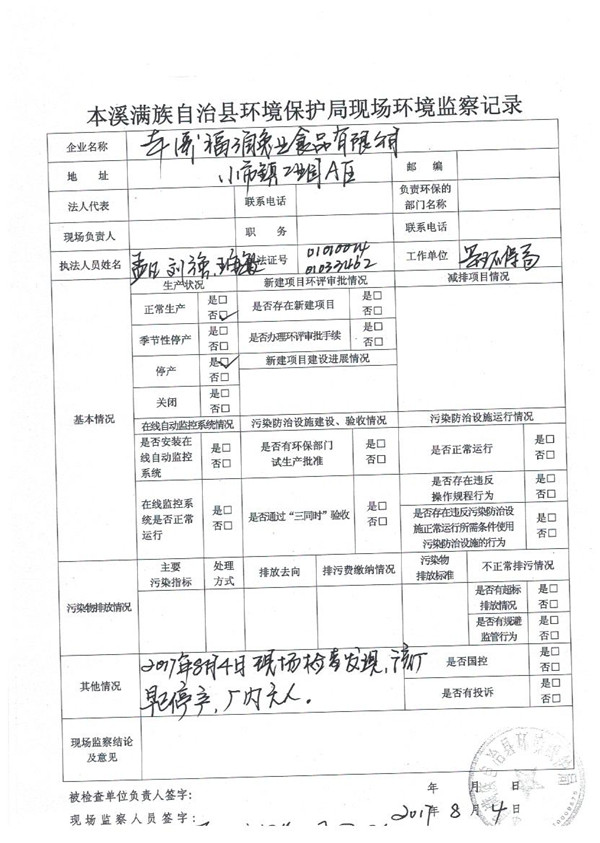 本溪满族自治县环境保护局现场环境监察记录
企业名称 本溪福润肉业食品有限公司
地 址 小市镇工业园A区 邮 编
法人代表 联系电话 负责环保的部门名称
现场负责人 职 务 联系电话
执法人员姓名 刘 执法证号 工作单位 县环保局
01033462
生产状况 新建项目环评审批情况 减排项目情况
基本情况
正常生产 是□ 否□✓ 是否存在新建项目 是□ 否□
季节性停产 是□ 否□ 是否办理环评审批手续 是□ 否□
停产 是□✓ 否□ 新建项目建设进展情况
关闭 是□ 否□
在线自动监控系统情况 污染防治设施建设、验收情况 污染防治设施运行情况
是否安装在线自动监控系统 是□ 否□ 是否有环保部门试生产批准 是□ 否□ 是否正常运行 是□ 否□
在线监控系统是否正常运行 是□ 否□ 是否通过“三同时”验收 是□ 否□ 是否存在违反操作规程行为 是□ 否□
是否存在违反污染防治设施正常运行所需条件使用污染防治设施的行为 是□ 否□
污染物排放情况
主要污染指标 处理方式 排放去向 排污费缴纳情况 污染物排放标准 不正常排污情况
是否有超标排放情况 是□ 否□
是否有规避监管行为 是□ 否□
其他情况
2017年8月4日现场检查发现,该厂
早已停产,厂内无人。
是否国控 是□ 否□
是否有投诉 是□ 否□
现场监察结论及意见
被检查单位负责人签字: 年 月 日
现场监察人员签字: 2017年 8月 4日